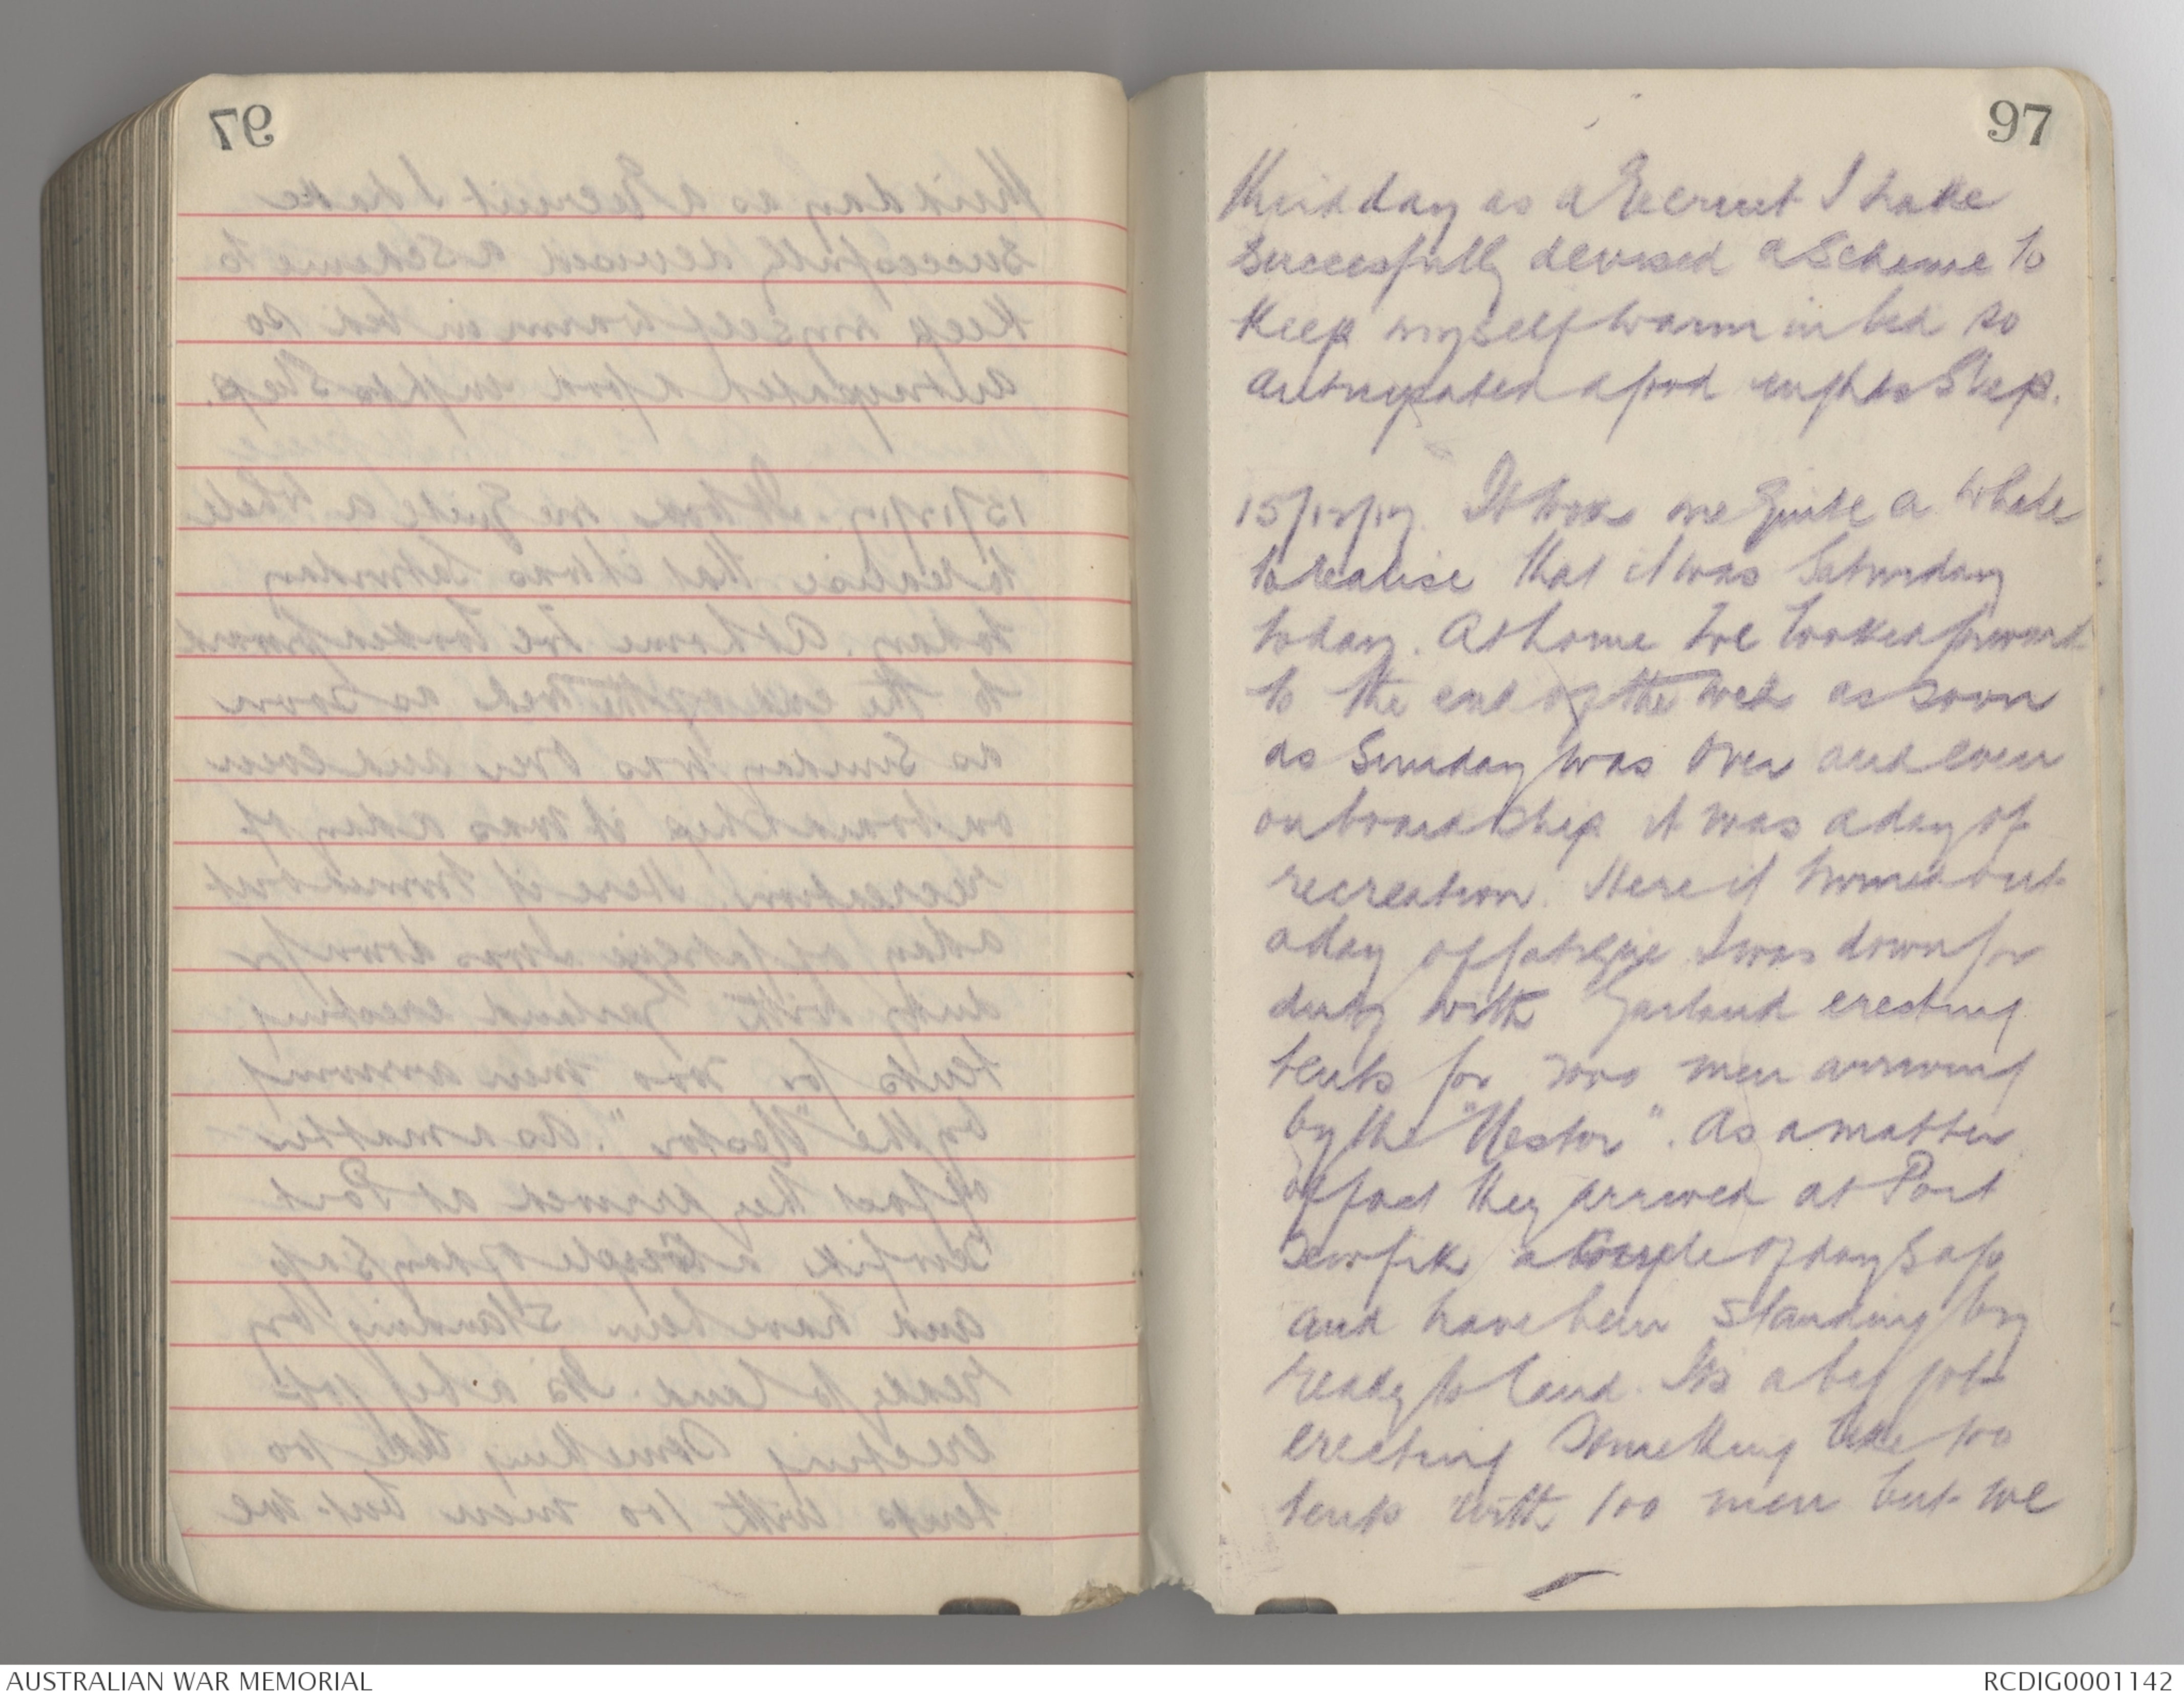 97
Third day as a Recruit I have
successfully devised a scheme to
keep myself warm in bed so
anticipated a good nights sleep.
15/12/17. It took me Quite a while
to realise that it was Saturday
today. At home we looked forward
to the end of the week as soon
as Sunday was over and even
on board ship it was a day of
recreation. Here it turned out
a day of fatigue I was down for
duty with Garland erecting
tents for 2000 men arriving
by the "Nestor". As a matter
of fact they arrived at Port
Tewfik a couple of days ago
and have been standing by
ready to land. Its a big job
erecting something like 100
tents with 100 men but we
AUSTRALIAN WAR MEMORIAL
RCDIG0001142